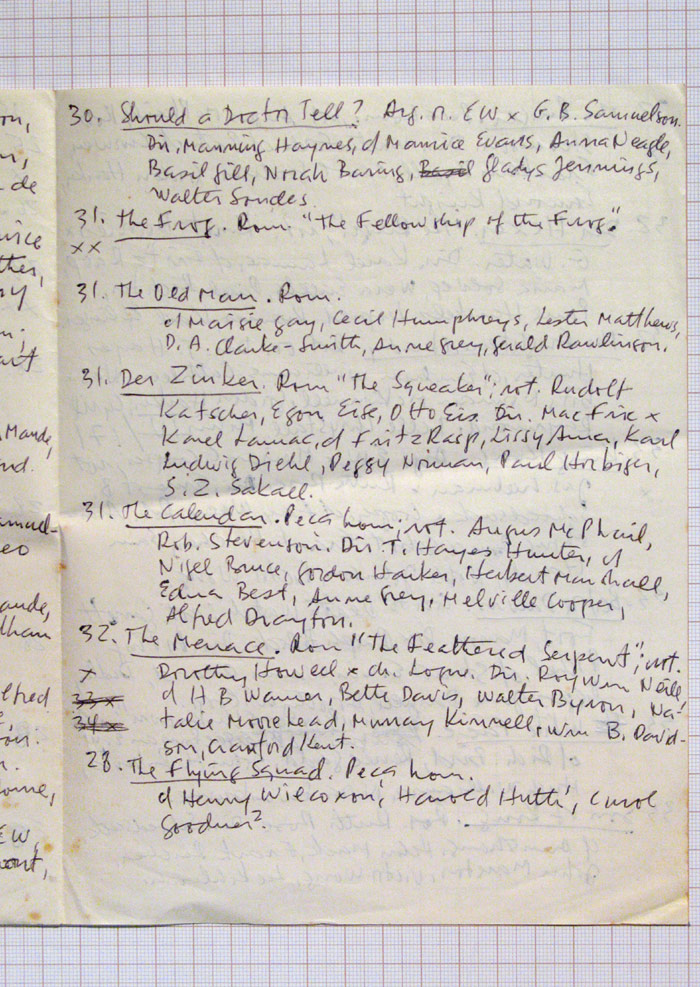 30. Should a Doctor Tell? Arg. n. EW x G. B. Samuelson.
Dir. Manning Haynes, d Maurice Evans, Anna Neagle,
Basil Gill, Norah Baring, Basil Gladys Jennings,
Walter Sondes.
31. The Frog. Rom. "The Fellowship of the Frog".
xx
31. The Old Man. Rom.
d Maisie Gay, Cecil Humphreys, Lester Matthews,
D. A. Clarke-Smith, Anne Grey, Gerald Rawlinson.
31. Der Zinker. Rom "The Squeaker"; rot. Rudolf
Katscher, Egon Eise, Otto Eis. Dir. Mac Fric x
Karel Lamac, d Fritz Rasp, Lissy Arna, Karl
Ludwig Diehl, Peggy Norman, Paul Horbiger,
S. Z. Sakall.
31. The Calendar. Peça hom; rot. Angus McPhail,
Rob. Stevenson. Dir. T. Hayes Hunter, d
Nigel Bruce, Gordon Harker, Herbert Marshall,
Edna Best, Anne Grey, Melville Cooper,
Alfred Drayton.
32. The Menace. Rom "The Feathered Serpent"; rot.
x Dorothy Howell x ch. Logue. Dir. Roy Wm Neill,
33 x d H B Warner, Bette Davis, Walter Byron, Na-
34 x talie Moorehead, Murray Kinnell, Wm B. David-
son, Crawford Kent.
28. The Flying Squad. Peça hom.
d Henry Wilcoxon, Harold Huth, Carol
Goodner?